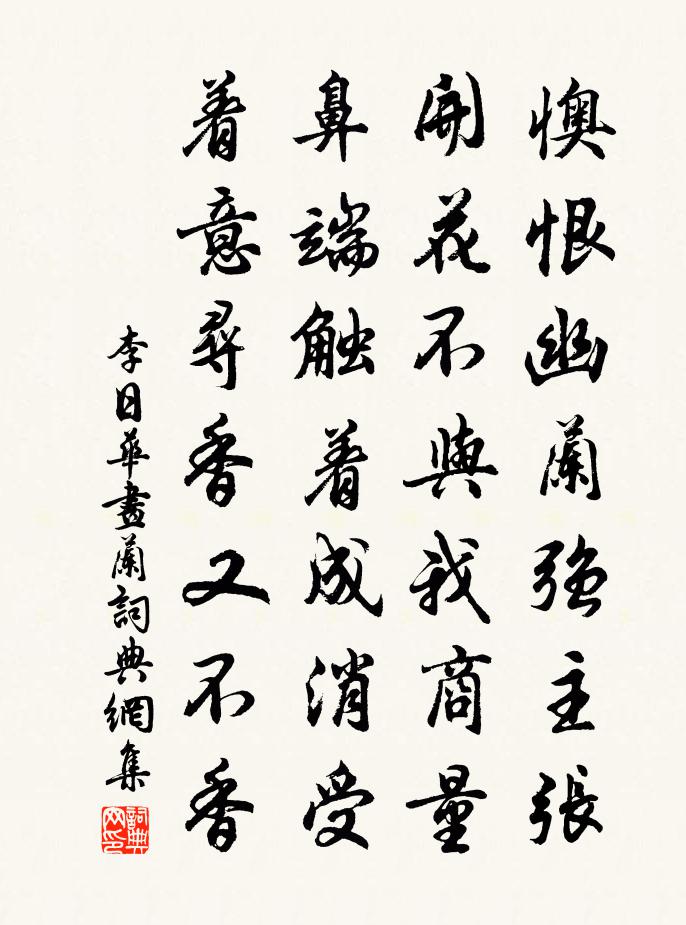 懊恨幽蘭強主張
開花不與我商量
鼻端触着成消受
着意尋香又不香
李日華畫蘭詞典網集
詞典网印